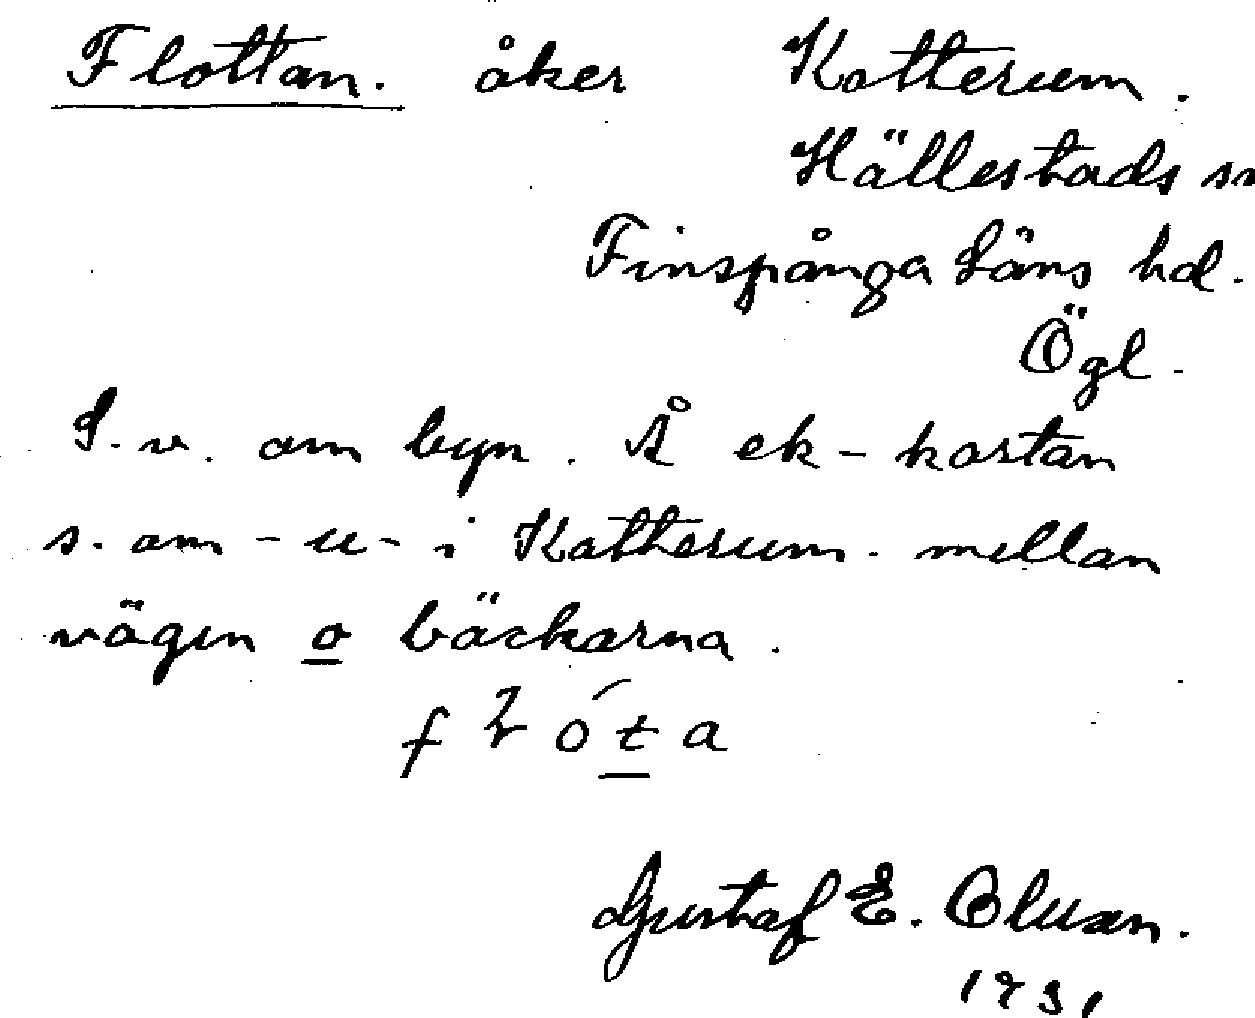 Flottan. åker Katterum.
Hällestads sn
Finspånga läns hd.
Ögl.
S.v. om byn. Å ek-kartan
s. om -u- i Katterum. mellan
vägen o bäckarna.
Gustaf E. Olsson.
1931